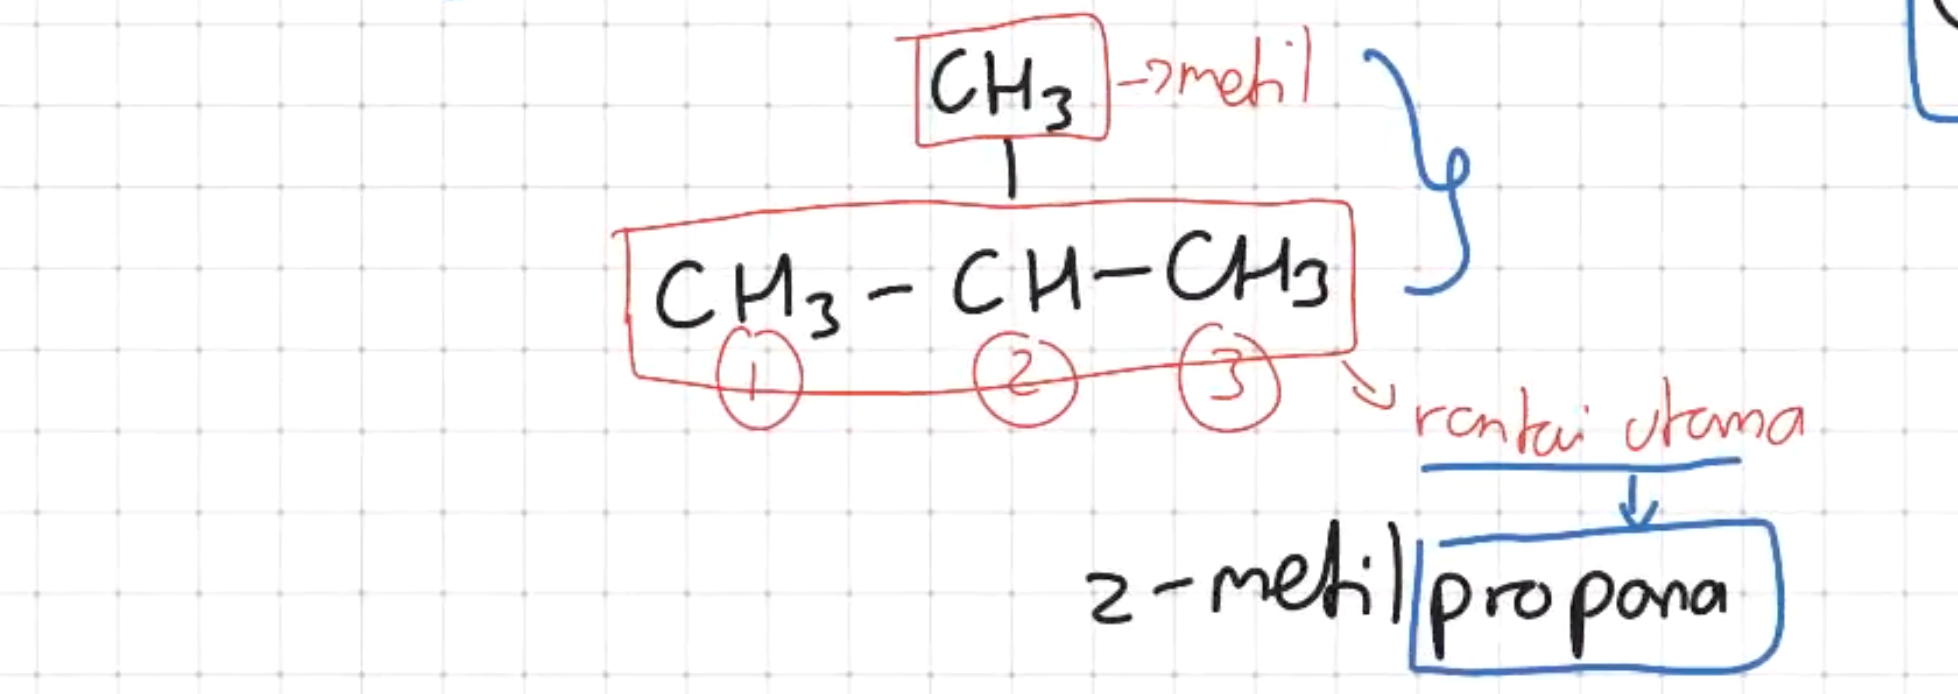 CH3 → metil
CH3 - CH - CH3
1 2 3
rantai utama
2-metilpropana